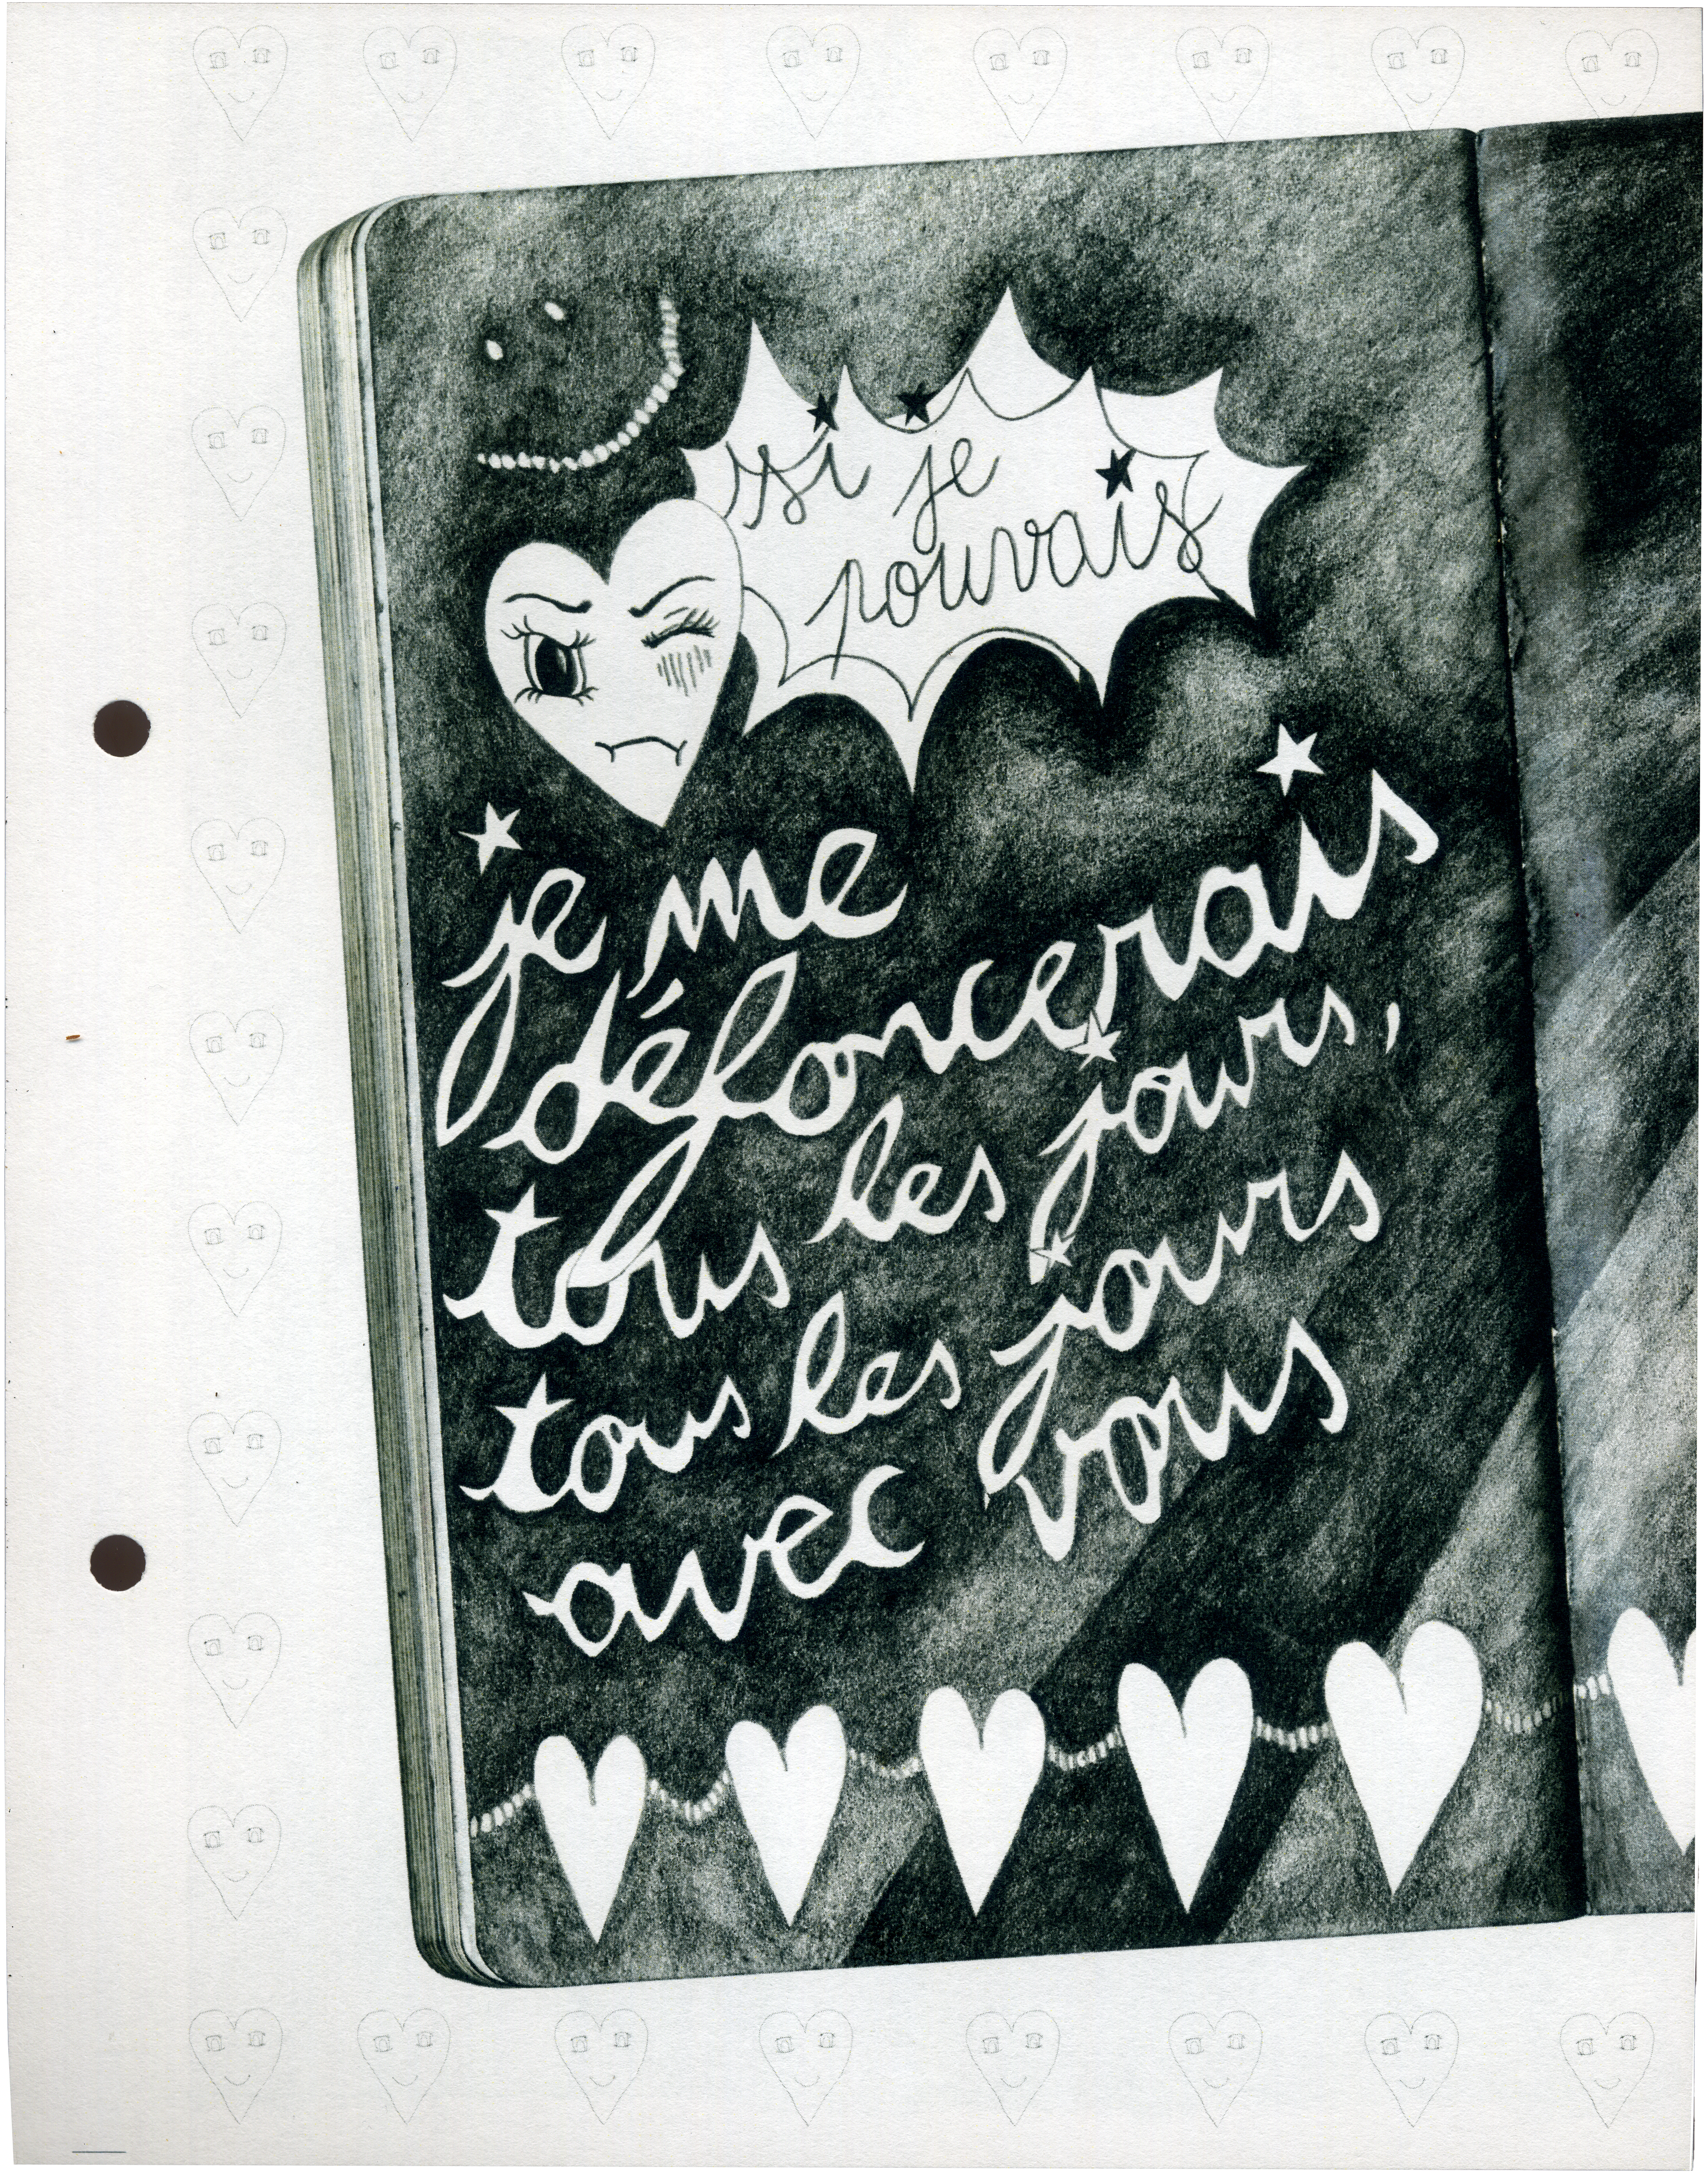 si je
pouvais
je me
défoncerais
tous les jours,
tous les jours
avec vous